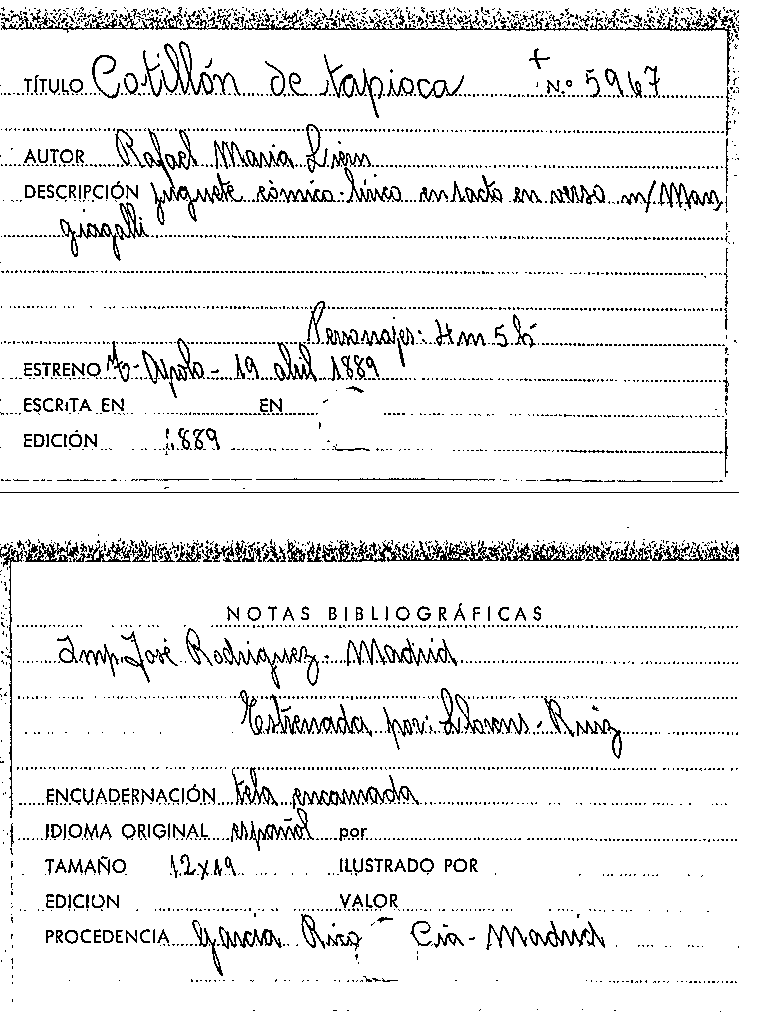 TÍTULO Cotillón de tapioca + N.º 5967
AUTOR Rafael Maria Liern
DESCRIPCIÓN juguete cómico-lírico en 1 acto en verso m/ Man
giagalli
Personajes: 4m 5h
ESTRENO To-Apolo- 19 abril 1889
ESCRITA EN EN
EDICIÓN 1889
NOTAS BIBLIOGRÁFICAS
Imp. José Rodriguez- Madrid
Estrenada por: Llorens- Ruiz
ENCUADERNACIÓN tela encarnada
IDIOMA ORIGINAL español por
TAMAÑO 12x19 ILUSTRADO POR
EDICION VALOR
PROCEDENCIA García Rico Cía- Madrid